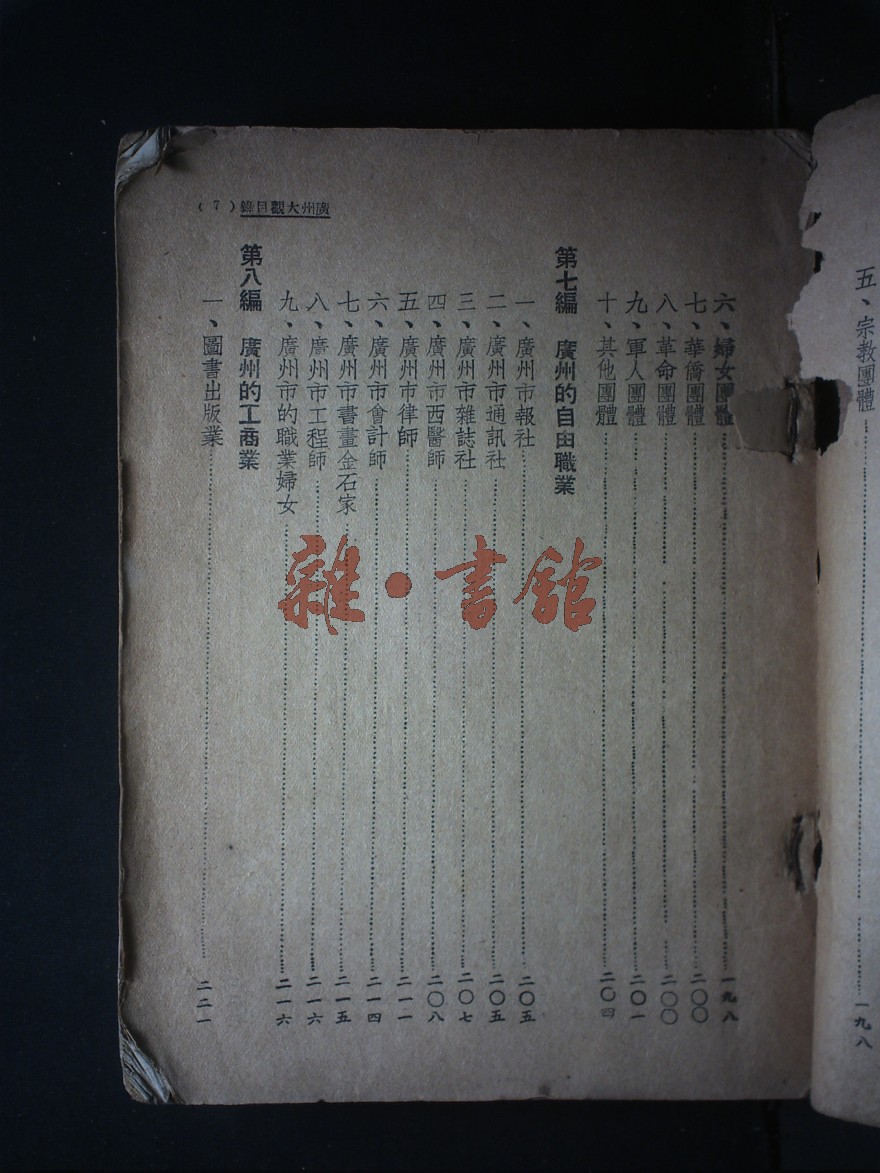 五、宗教團體……一九八
廣州大觀目錄(7)
六、婦女團體……一九八
七、華僑團體……二〇〇
八、革命團體……二〇〇
九、軍人團體……二〇一
十、其他團體……二〇四
第七編 廣州的自由職業
一、廣州市報社……二〇五
二、廣州市通訊社……二〇五
三、廣州市雜誌社……二〇七
四、廣州市西醫師……二〇八
五、廣州市律師……二一一
六、廣州市會計師……二一四
七、廣州市書畫金石家……二一五
八、廣州市工程師……二一六
九、廣州市的職業婦女……二一六
第八編 廣州的工商業
一、圖書出版業……二二一
雜·書館